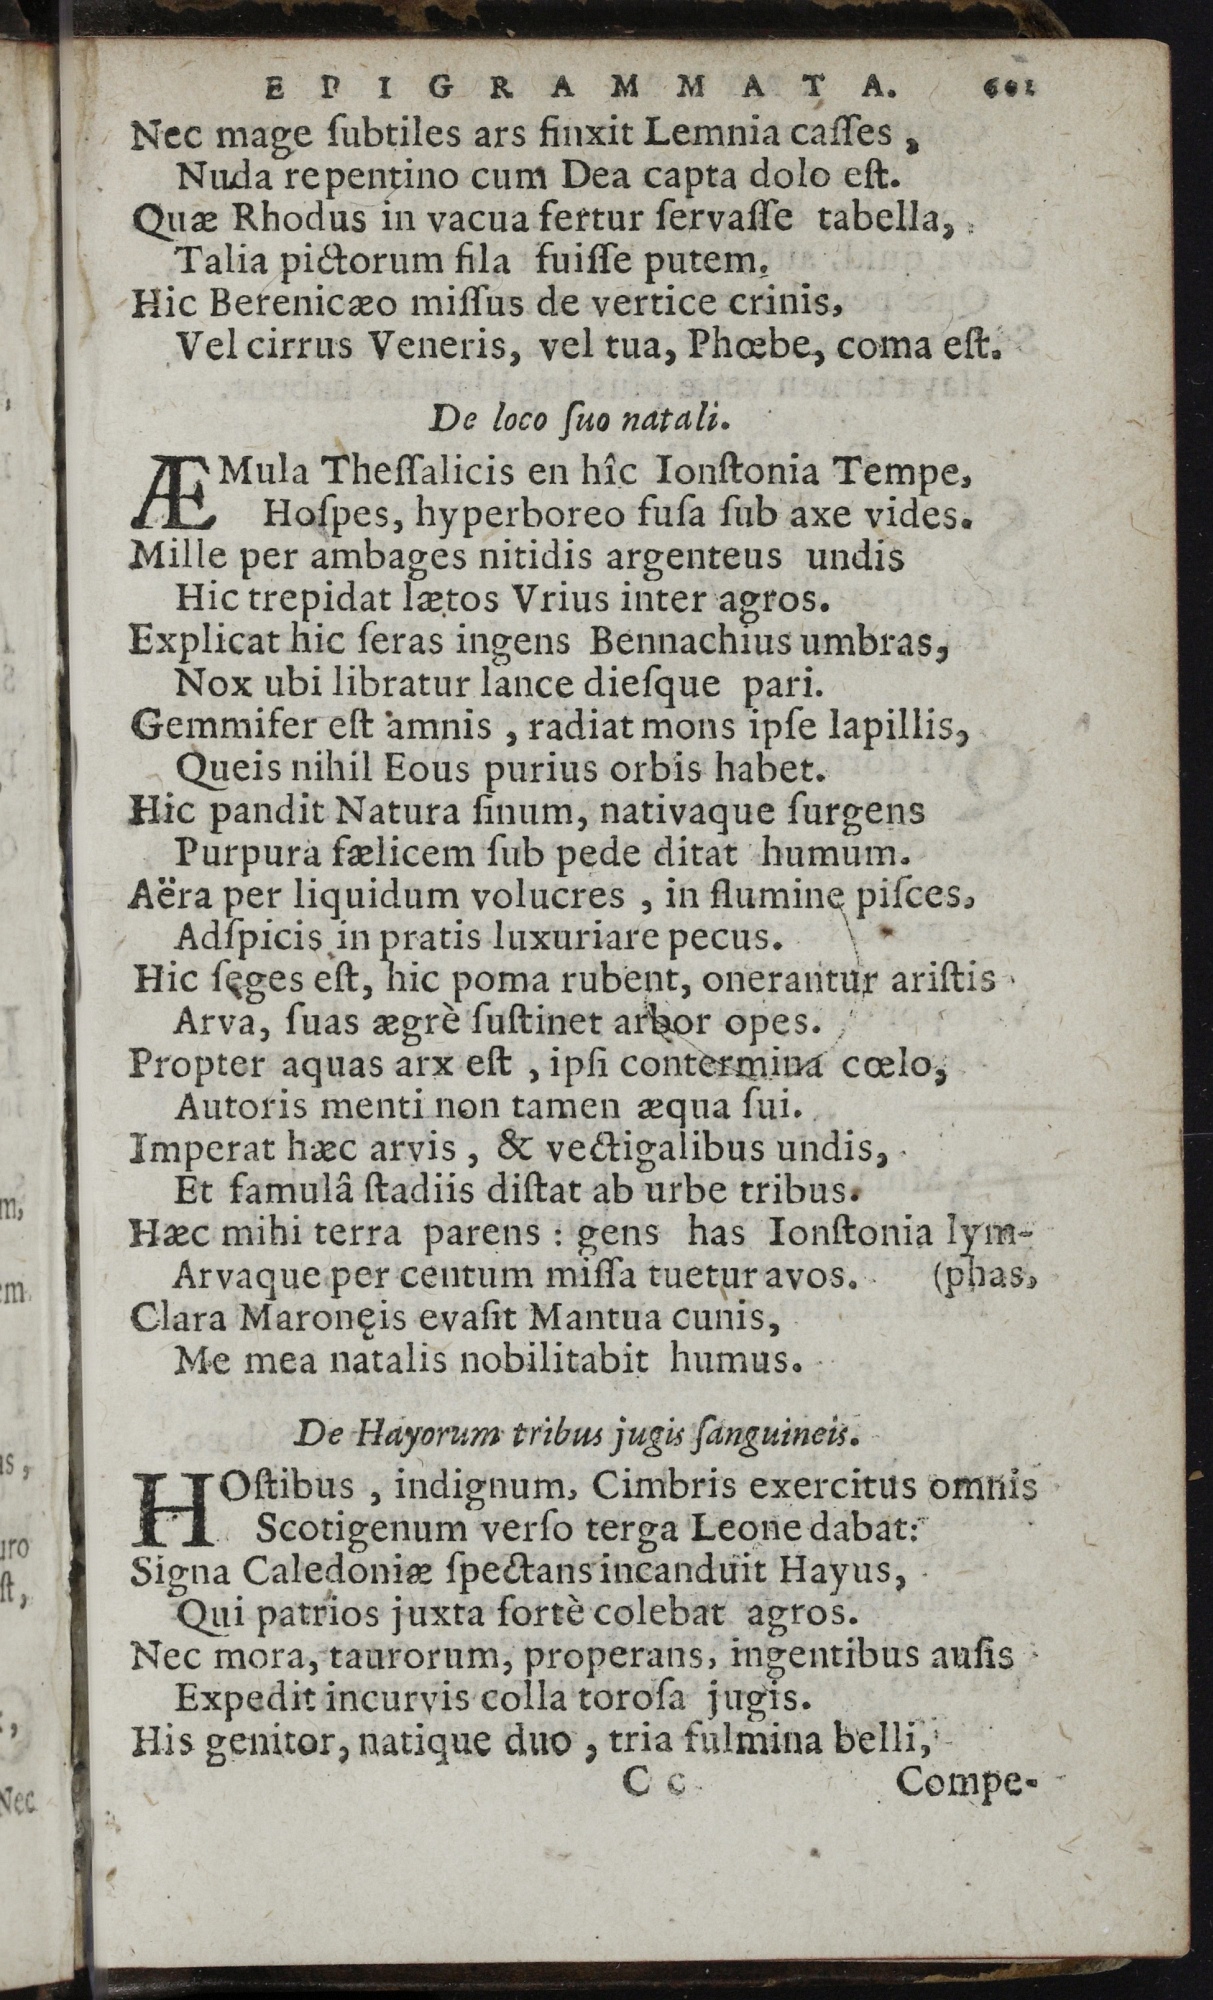 EPIGRAMMATA. 601
Nec mage ſubtiles ars finxit Lemnia caſſes,
Nuda repentino cum Dea capta dolo eſt.
Quæ Rhodus in vacua fertur ſervaſſe tabella,
Talia pictorum fila fuiſſe putem.
Hic Berenicæo miſſus de vertice crinis,
Vel cirrus Veneris, vel tua, Phœbe, coma eſt.
De loco ſuo natali.
ÆMula Theſſalicis en hîc Ionſtonia Tempe,
Hoſpes, hyperboreo fuſa ſub axe vides.
Mille per ambages nitidis argenteus undis
Hic trepidat lætos Vrius inter agros.
Explicat hic ſeras ingens Bennachius umbras,
Nox ubi libratur lance dieſque pari.
Gemmifer eſt amnis, radiat mons ipſe lapillis,
Queis nihil Eous purius orbis habet.
Hic pandit Natura ſinum, nativaque ſurgens
Purpura fælicem ſub pede ditat humum.
Aëra per liquidum volucres, in flumine piſces,
Adſpicis in pratis luxuriare pecus.
Hic ſeges eſt, hic poma rubent, onerantur ariſtis
Arva, ſuas ægrè ſuſtinet arbor opes.
Propter aquas arx eſt, ipſi contermina cœlo,
Autoris menti non tamen æqua ſui.
Imperat hæc arvis, & vectigalibus undis,
Et famulâ ſtadiis diſtat ab urbe tribus.
Hæc mihi terra parens : gens has Ionſtonia lym-
Arvaque per centum miſſa tuetur avos. (phas,
Clara Maronęis evaſit Mantua cunis,
Me mea natalis nobilitabit humus.
De Hayorum tribus jugis ſanguineis.
HOſtibus, indignum, Cimbris exercitus omnis
Scotigenum verſo terga Leone dabat:
Signa Caledoniæ ſpectans incanduit Hayus,
Qui patrios juxta fortè colebat agros.
Nec mora, taurorum, properans, ingentibus auſis
Expedit incurvis colla toroſa jugis.
His genitor, natique duo, tria fulmina belli,
C c Compe-